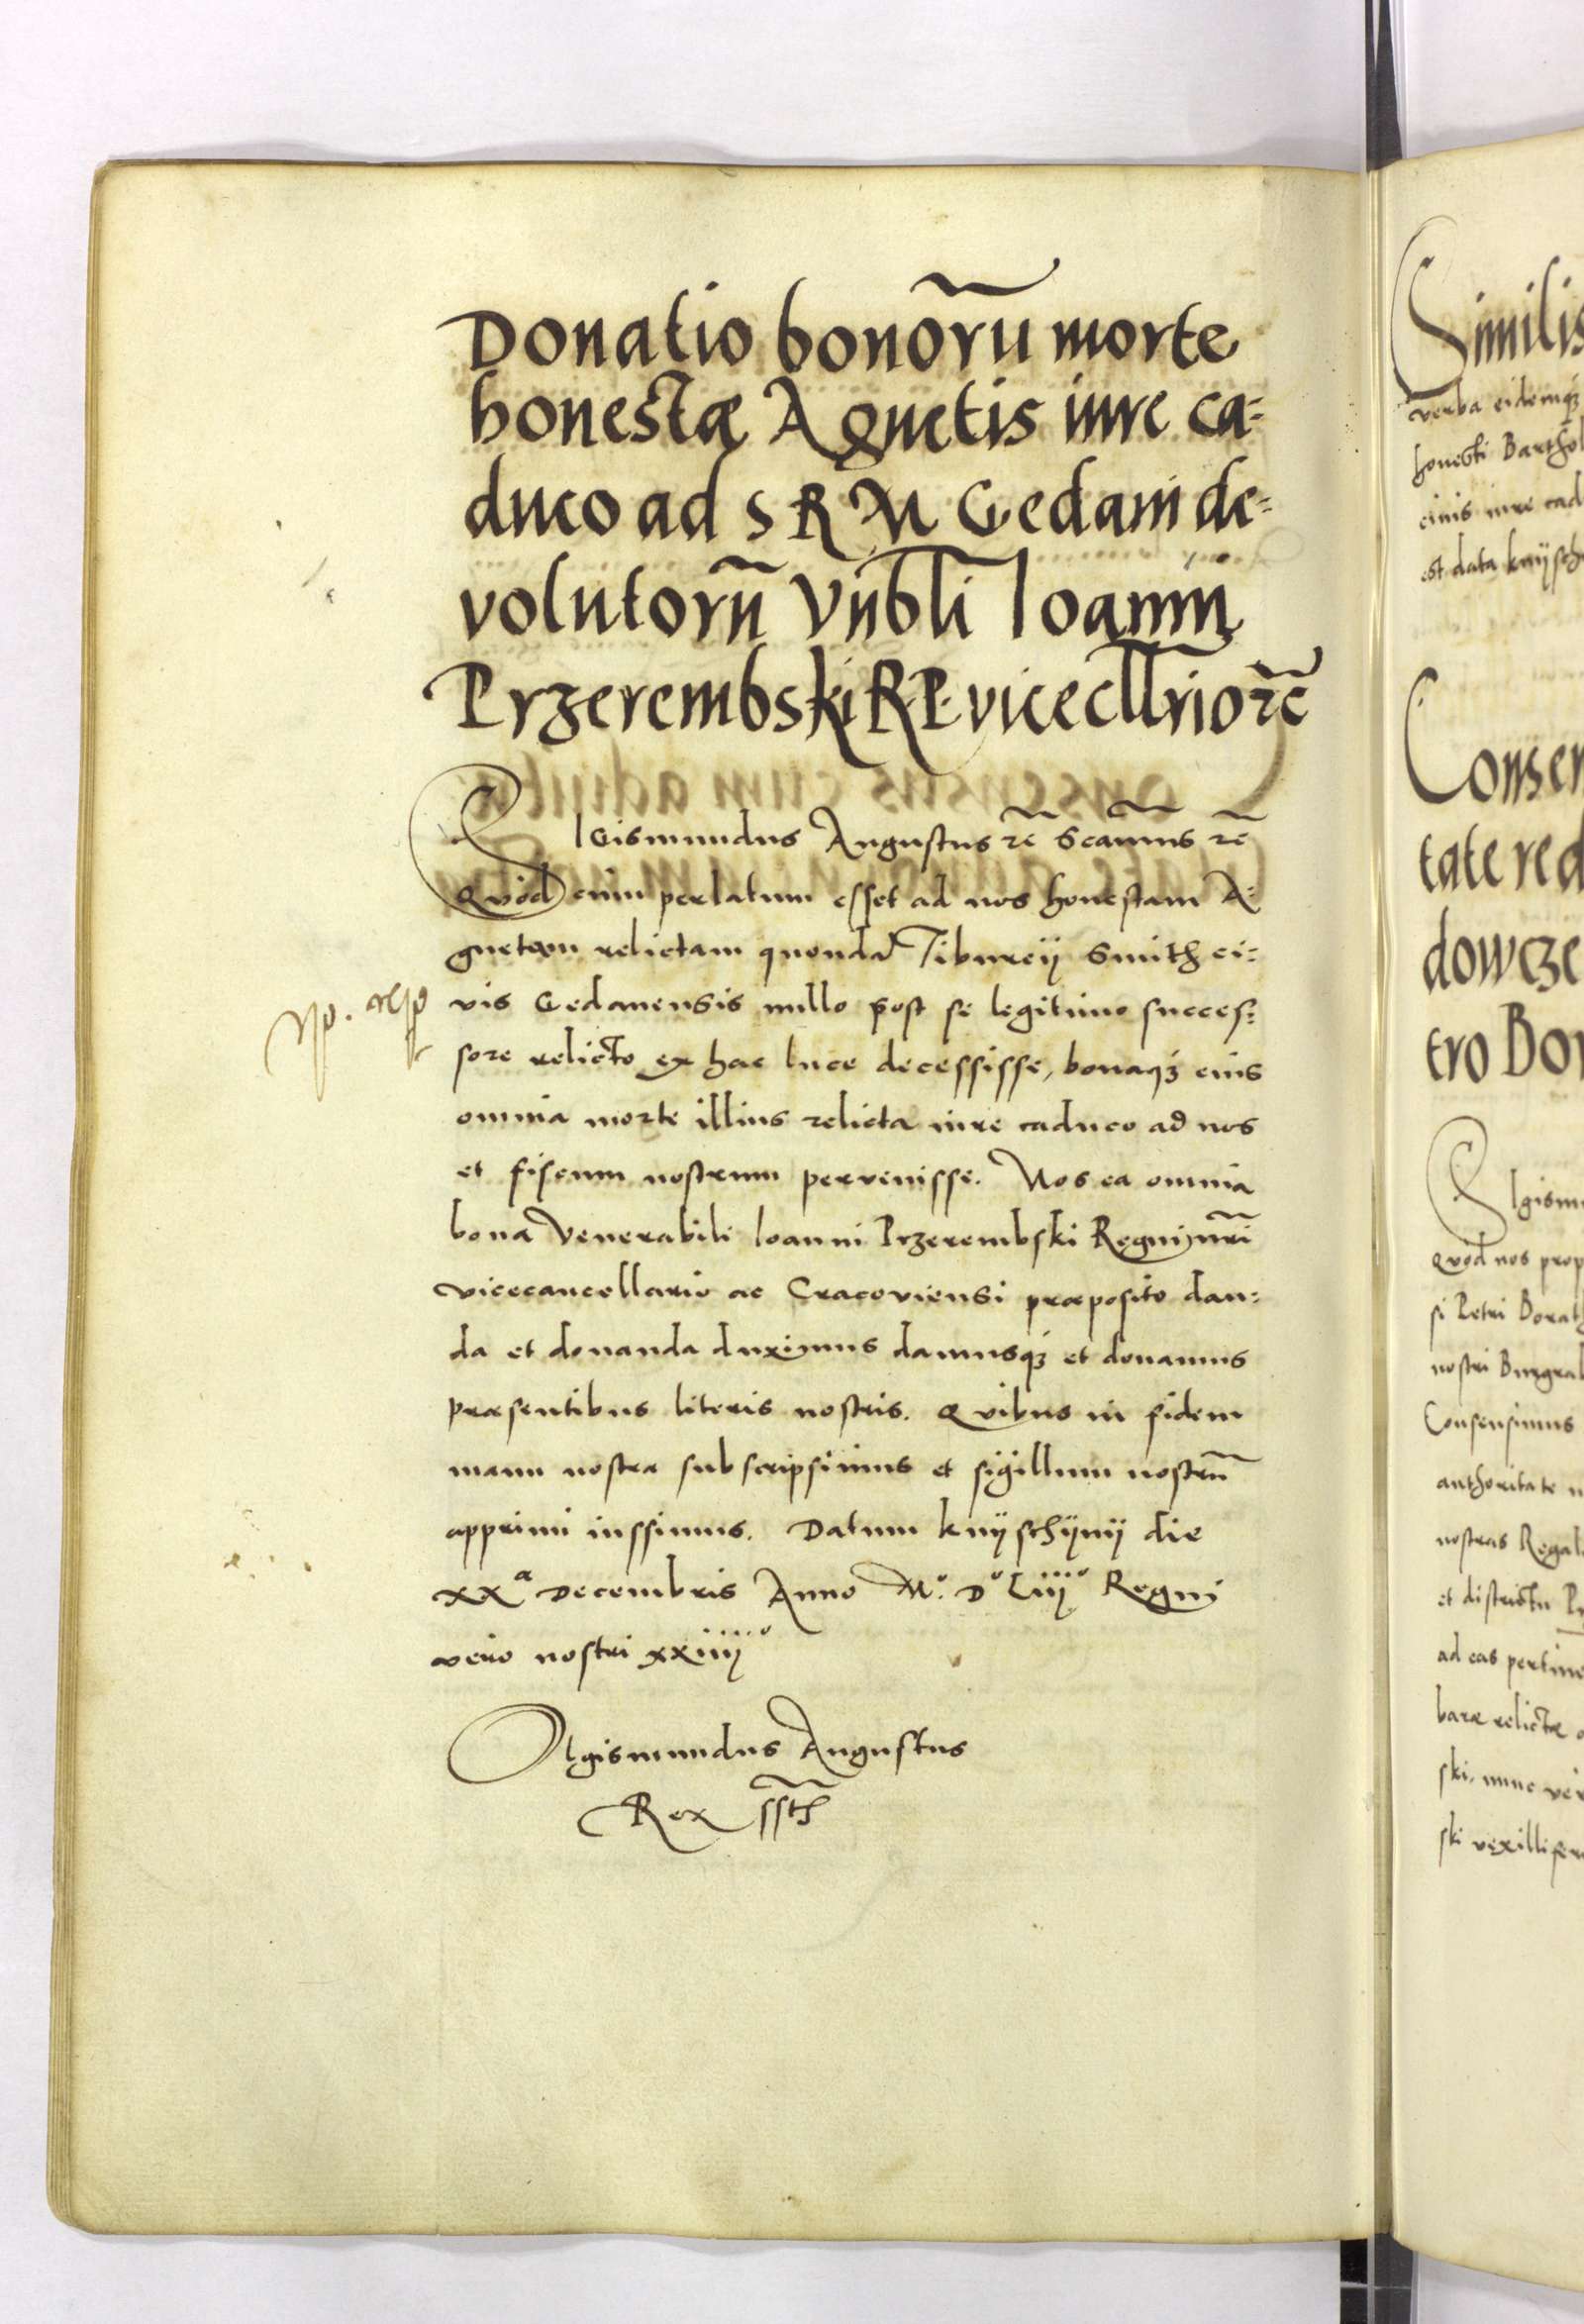 Donatio bonorũ morte
honestæ Agnetis iure ca=
duco ad S R M Gedani de=
volutorũ Vnbli Ioanni
Przerembski R.P. vicecllrio rc̃
SIGismundus Augustus rc̃ Scãmus rc̃
Qvod cum perlatum esset ad nos honestam A=
gnetem relictam quondã Tiburcij Smith ci=
vis Gedanensis nullo post se legitimo succes=
sore relicto ex hac luce decessisse, bonaqꝫ eius
omnia morte illius relicta iure caduco ad nos
et fiscum nostrum pervenisse. Nos ea omnia
bona Venerabili Ioanni Przerembski Regni nr̃i
vicecancellario ac Cracoviensi præposito dan=
da et donanda duximus damusqꝫ et donamus
præsentibus literis nostris. Qvibus in fidem
manu nostra subscripsimus et sigillum nostrũ
apprimi iussimus. Datum knijschijnij die
XXª Decembris Anno Mº. Dº Liijº Regni
vero nostri xxiiijº
SIgismundus Augustus
Rex ssth
Similis
verba eidemqꝫ
honesti Barthol
civis iure cad
est data knijsch
Consen
tate red
dowcze
tro Bor
SIgism
Qvod nos prop
si Petri Borat
nostri Burgrab
Consensimus
authoritate n
nostras Regal
et districtu P
ad eas pertine
baræ relictæ
ski, nunc ver
ski vexillifer